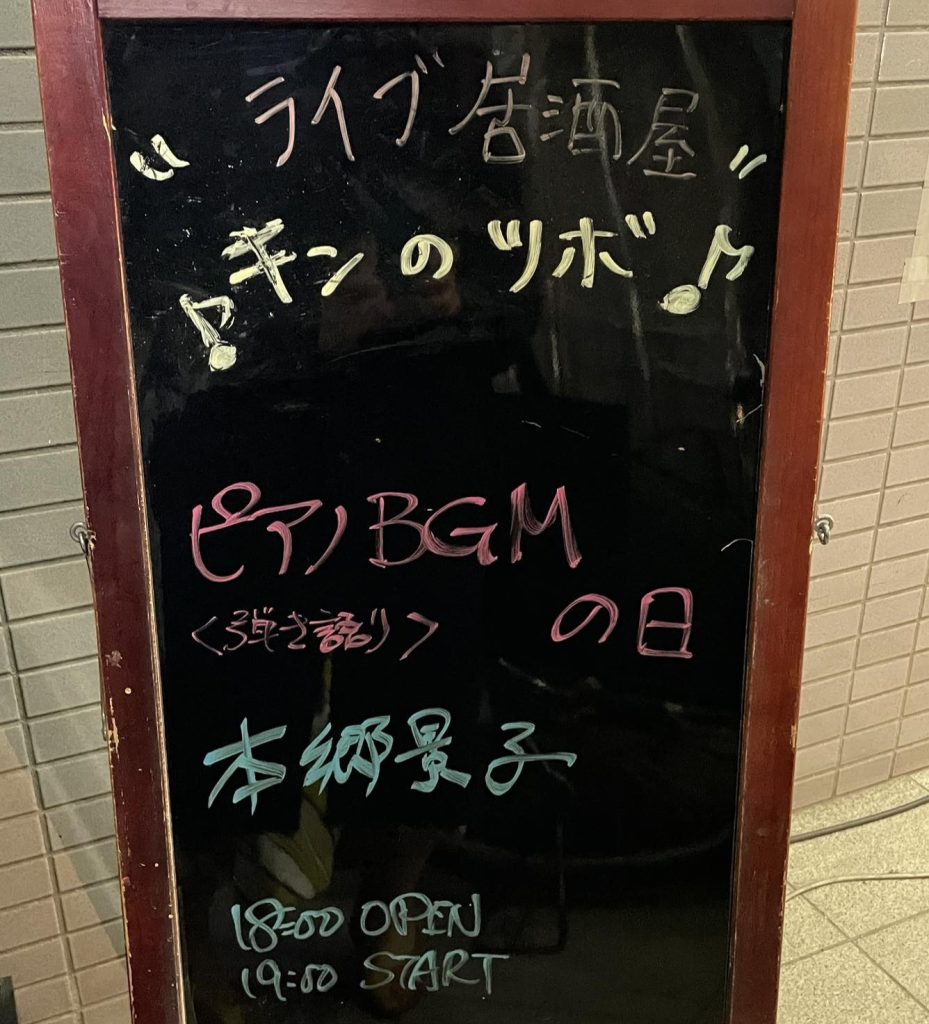 ライブ居酒屋
"キンのツボ"
ピアノBGM
<弾き語り> の日
本郷景子
18:00 OPEN
19:00 START